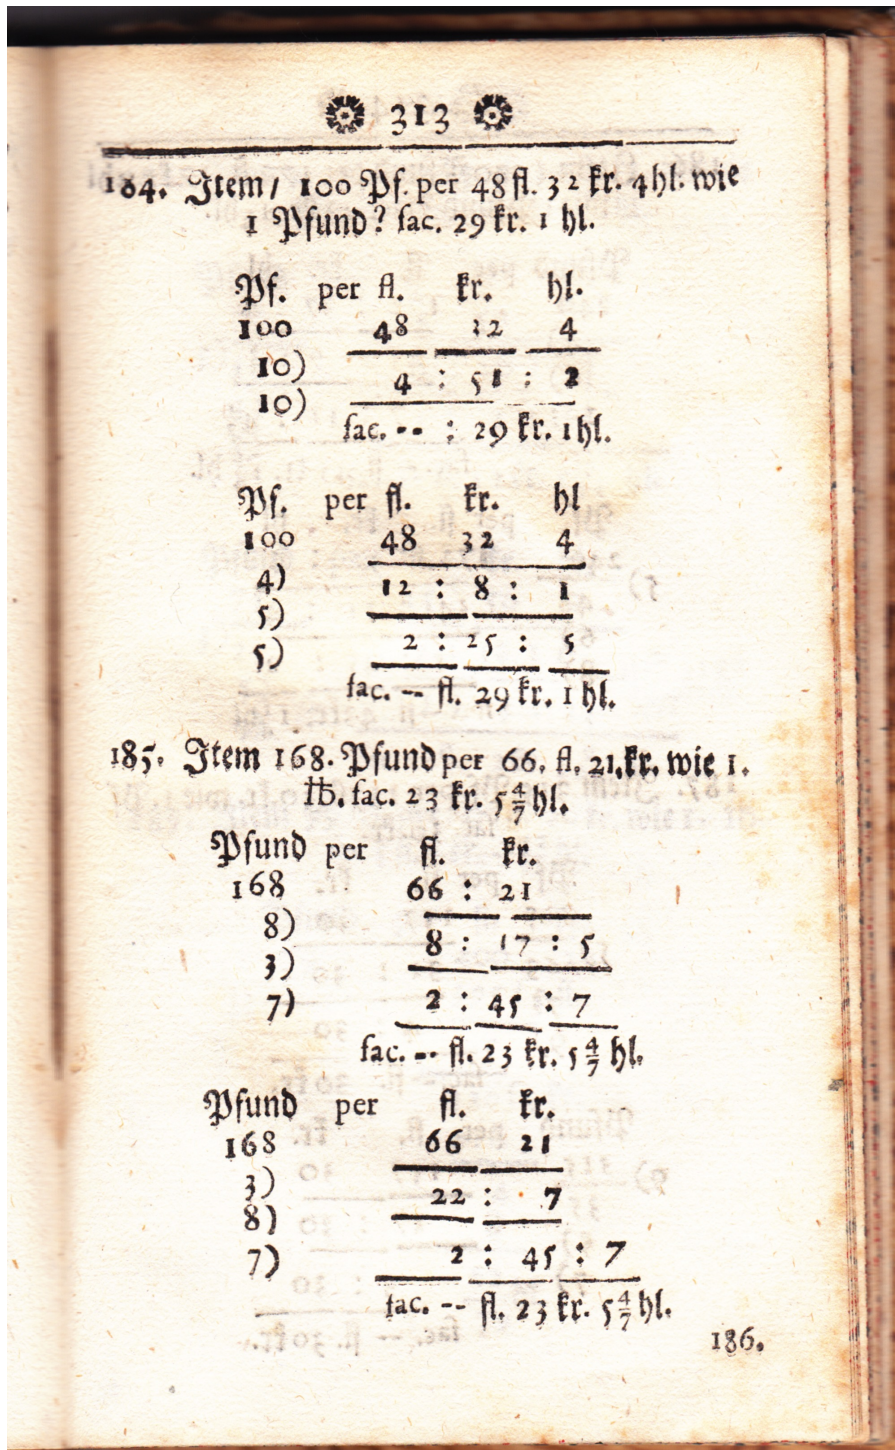 313
184. Item / 100 Pf. per 48 fl. 32 kr. 4 hl. wie
1 Pfund? fac. 29 kr. 1 hl.
Pf. per fl. kr. hl.
100 48 32 4
10)
4 : 51 : 2
10)
fac. -- : 29 kr. 1 hl.
Pf. per fl. kr. hl
100 48 32 4
4) 12 : 8 : 1
5)
5) 2 : 25 : 5
fac. -- fl. 29 kr. 1 hl.
185. Item 168. Pfund per 66. fl. 21. kr. wie 1.
℔. fac. 23 kr. 5 4/7 hl.
Pfund per fl. kr.
168 66 : 21
8)
8 : 17 : 5
3)
7) 2 : 45 : 7
fac. -- fl. 23 kr. 5 4/7 hl.
Pfund per fl. kr.
168 66 21
3)
22 : 7
8)
7) 2 : 45 : 7
fac. -- fl. 23 kr. 5 4/7 hl.
186.